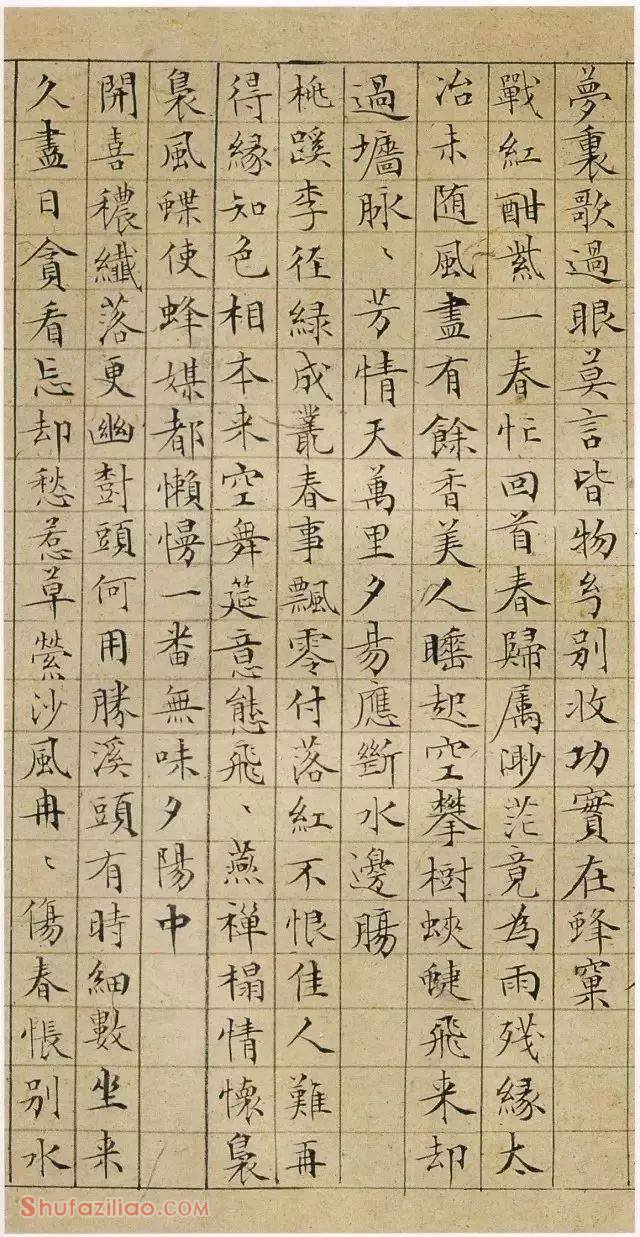 夢裏歌過眼莫言皆物幻別收功實在蜂窠
戰紅酣紫一春忙回首春歸屬渺茫竟為雨残緣太
冶未随風盡有餘香美人睡起空攀樹蛺蝶飛来却
過墻脉〻芳情天萬里夕昜應斷水邊腸
桃蹊李径緑成叢春事飄零付落紅不恨佳人難再
得緣知色相本来空舞筵意態飛〻燕禅榻情懷裊
裊風蝶使蜂媒都懶慢一番無味夕陽中
開喜穠纖落更幽樹頭何用勝溪頭有時細數坐来
久盡日貪看忘却愁惹草縈沙風冉〻傷春悵别水
Shufaziliao.com